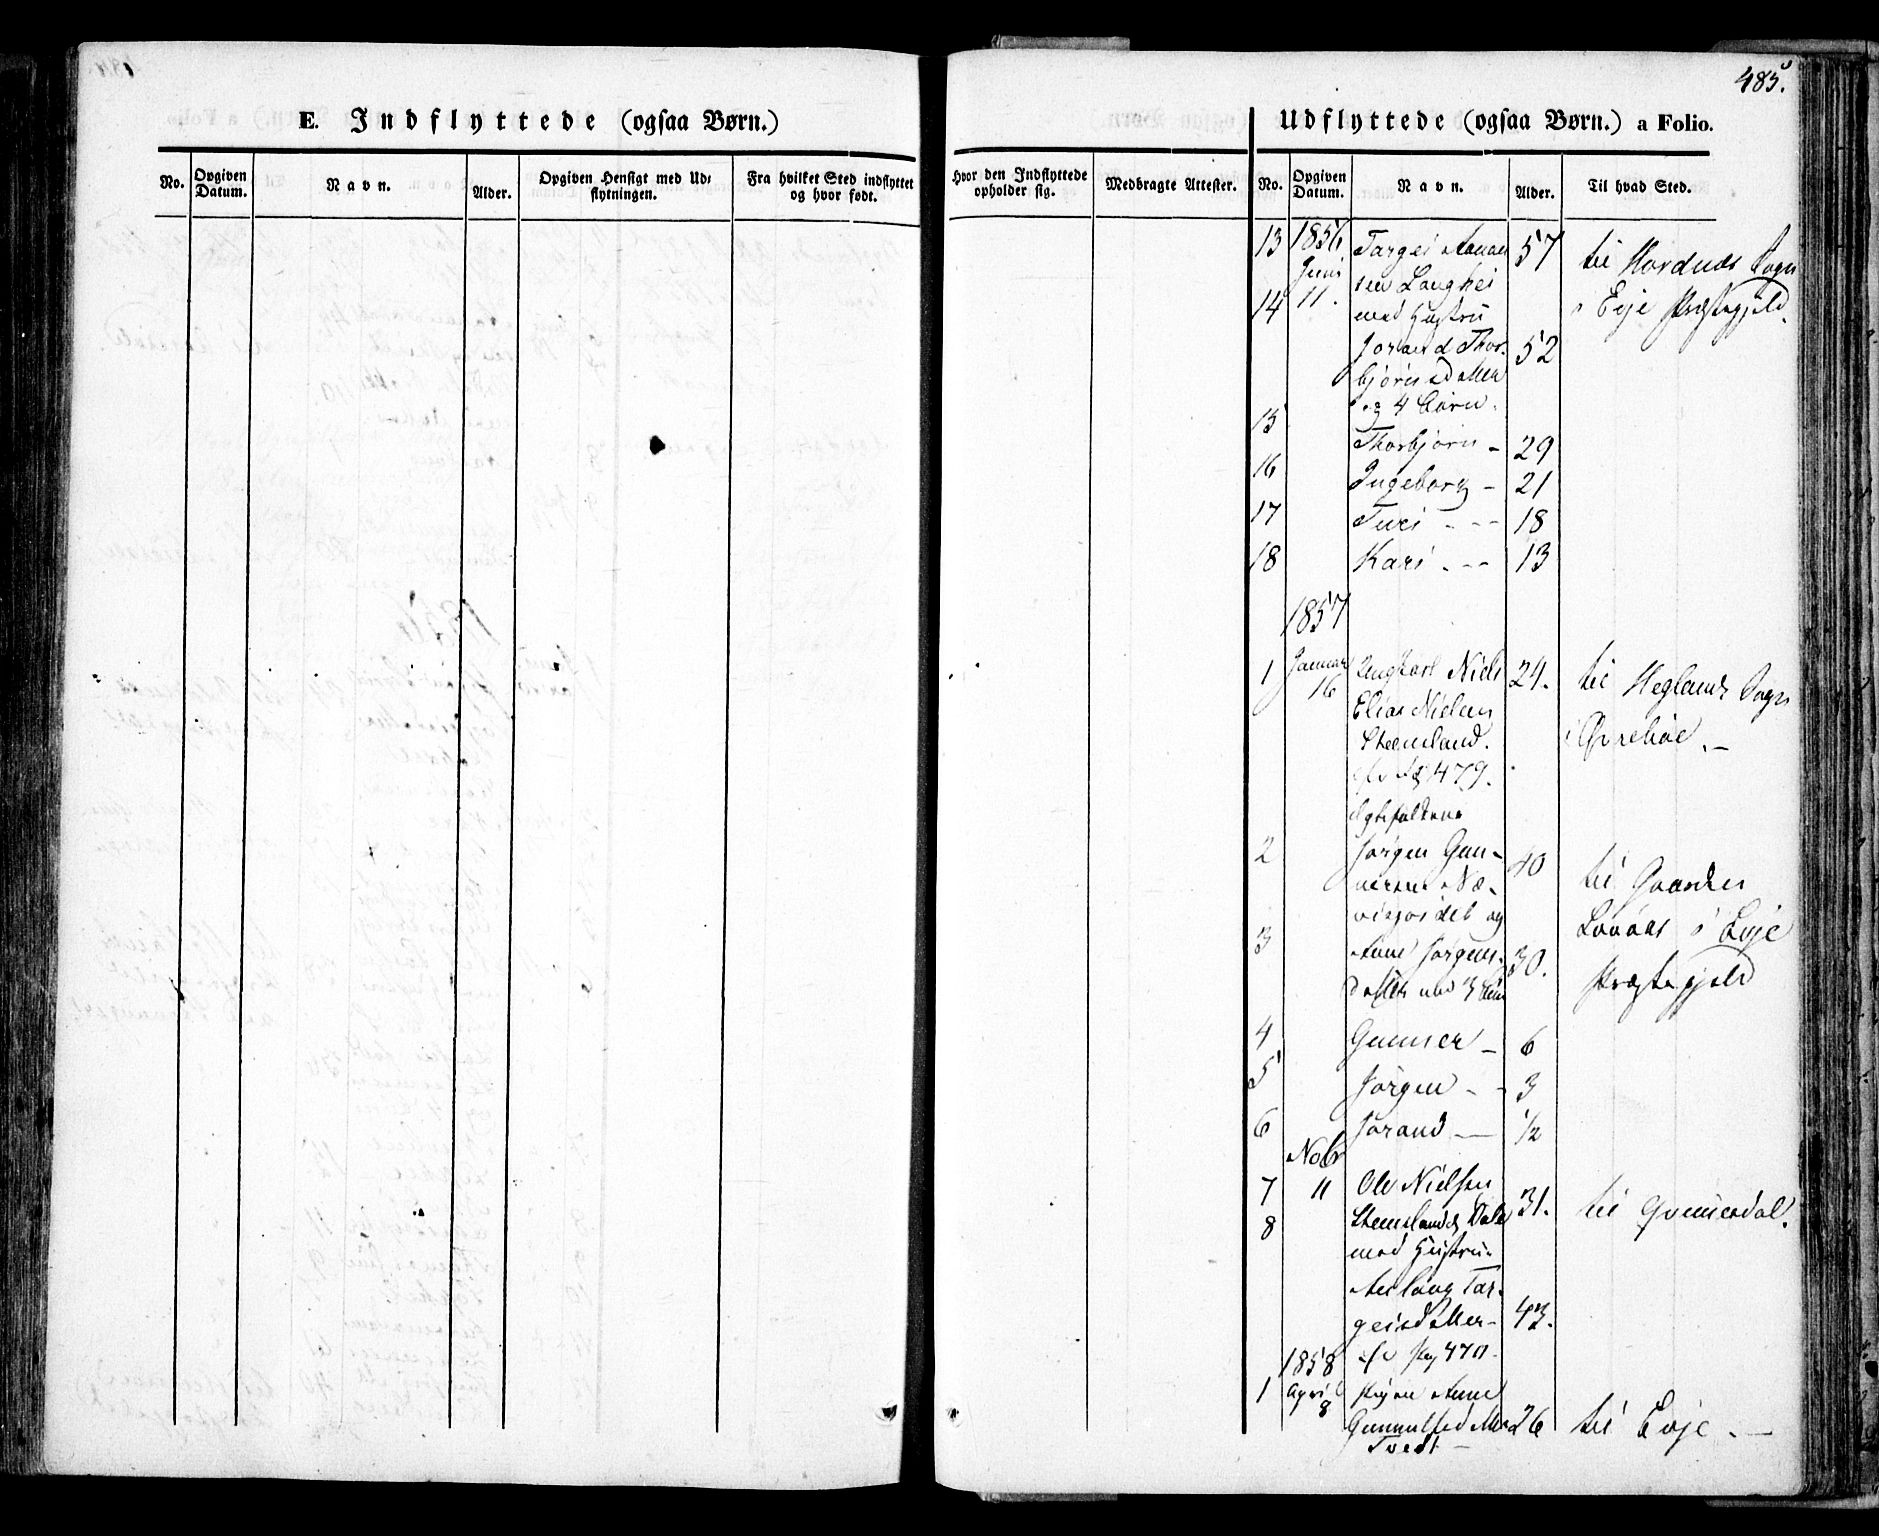 485.
E. Indflyttede (ogsaa Børn.)
Udflyttede (ogsaa Børn.) a Folio.
No. Opgiven Datum. Navn. Alder. Opgiven Hensigt med Udflytningen. Fra hvilket Sted indflyttet og hvor født.
Hvor den Indflyttede opholder sig. Medbragte Attester. No. Opgiven Datum. Navn. Alder. Til hvad Sted.
13 1856 Targei Aanon 57 til Hordnæs Sogn
Juni sen Langhei
14 11. med Hustru i Evje Præstegjeld.
Jorand Thor- 52
bjørnsd
og 4 Børn.
15 Thorbjørn - 29
16 Ingeborg - 21
17 Turi - - - 18
18 Kari - - - 13
1857
1 Januar Ungkarl Niels 24. til Heglands Sogn
16 Elias Nielsen
Steensland. i Øvrebøe. -
479.
Ægtefolkene
2 Jørgen Gun- 40 til Gaarden
3 Anne Jørgens- 30. i Evje
datter med 3 Børn Præstegjeld
4 Gunner - 6
5 Jørgen - - 3
6 Jorand - 1/2
Nobr
7 11 Ole Nielsen 31. til
8 med Hustru
Aslaug Tar-
43.
1858
1 April Pigen Anne
8 26 til Evje. -
Tvedt -